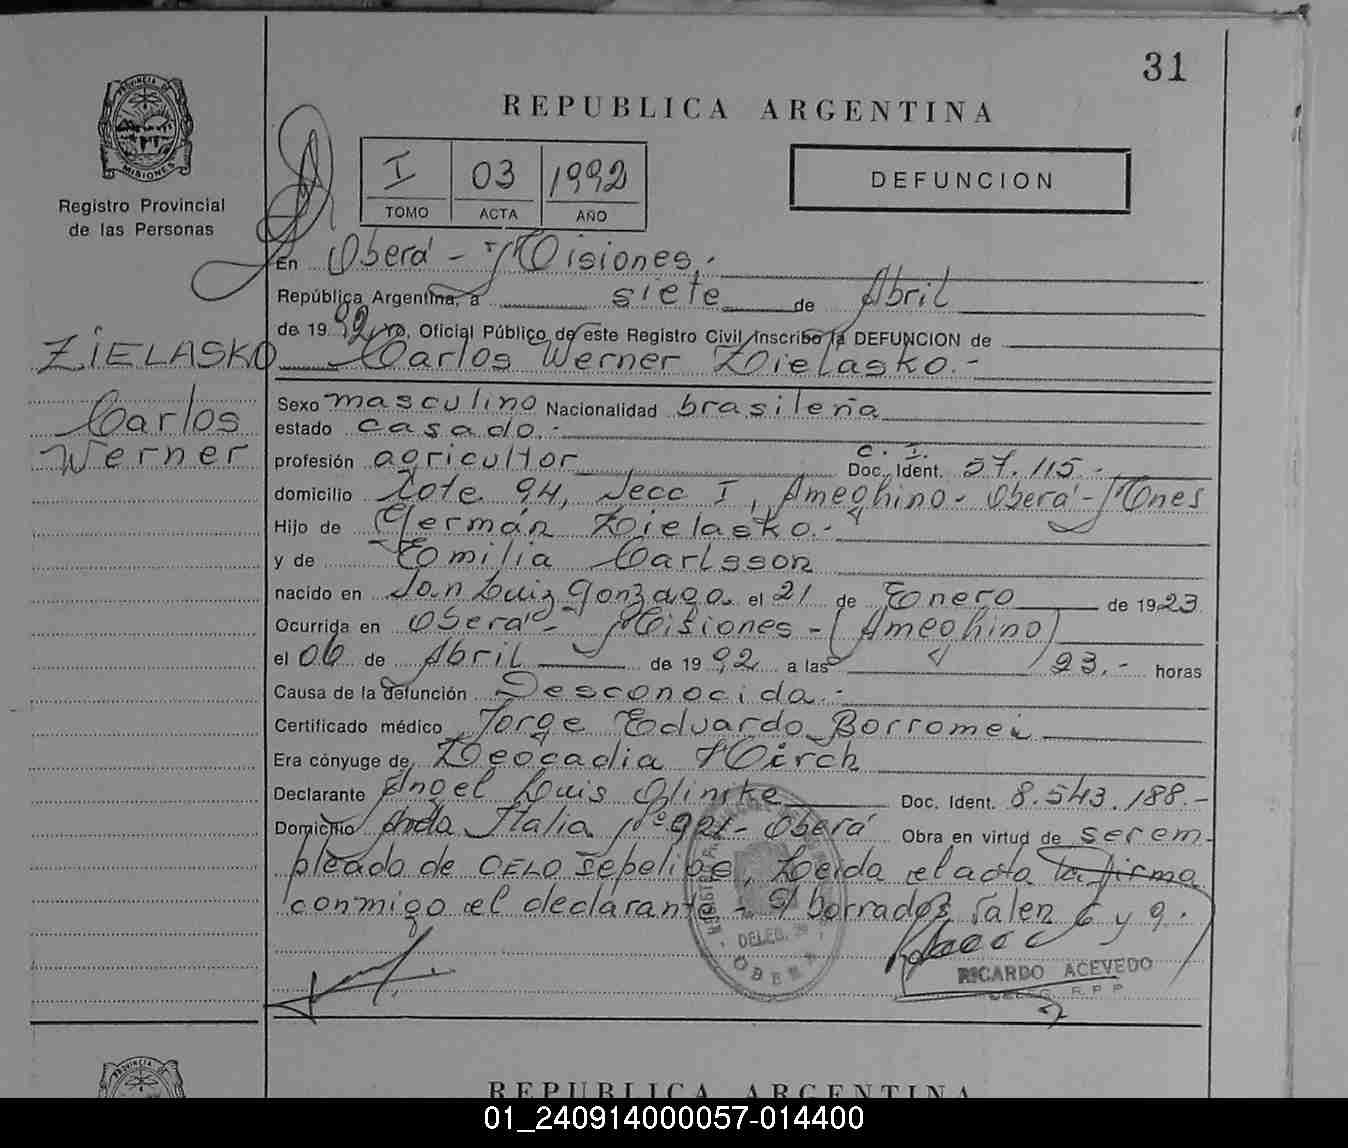 31
PROVINCIA DE
MISIONES
Registro Provincial
de las Personas
REPUBLICA ARGENTINA
I 03 1992
TOMO ACTA AÑO
DEFUNCION
En Oberá - Misiones.-
República Argentina, a siete de Abril
de 1992 yo, Oficial Público de este Registro Civil Inscribo la DEFUNCION de
ZIELASKO Carlos Werner Zielasko.-
Carlos
Werner
Sexo masculino Nacionalidad brasileña
estado casado.-
profesión agricultor C. I. Doc. Ident. 57.115.-
domicilio Lote 94, Secc I, Ameghino - Oberá - Mnes
Hijo de Germán Zielasko.-
y de Emilia Carlsson
nacido en San Luiz Gonzaga el 21 de Enero de 1923
Ocurrida en Oberá - Misiones - (Ameghino)
el 06 de Abril de 1992 a las 23.- horas
Causa de la defunción Desconocida.-
Certificado médico Jorge Eduardo Borromei
Era cónyuge de Leocadia Hirch
Declarante Angel Luis Glinike Doc. Ident. 8.543.188.-
Domicilio Avda Italia Nº 921 - Oberá Obra en virtud de ser em-
pleado de CELO Sepelios, Leida el acta la firma
conmigo el declarante - S/ borrados valen 6 y 9.
DELEG.
OBERA
RICARDO ACEVEDO
DELEG. R.P.P
PROVINCIA DE
REPUBLICA ARGENTINA
01_240914000057-014400